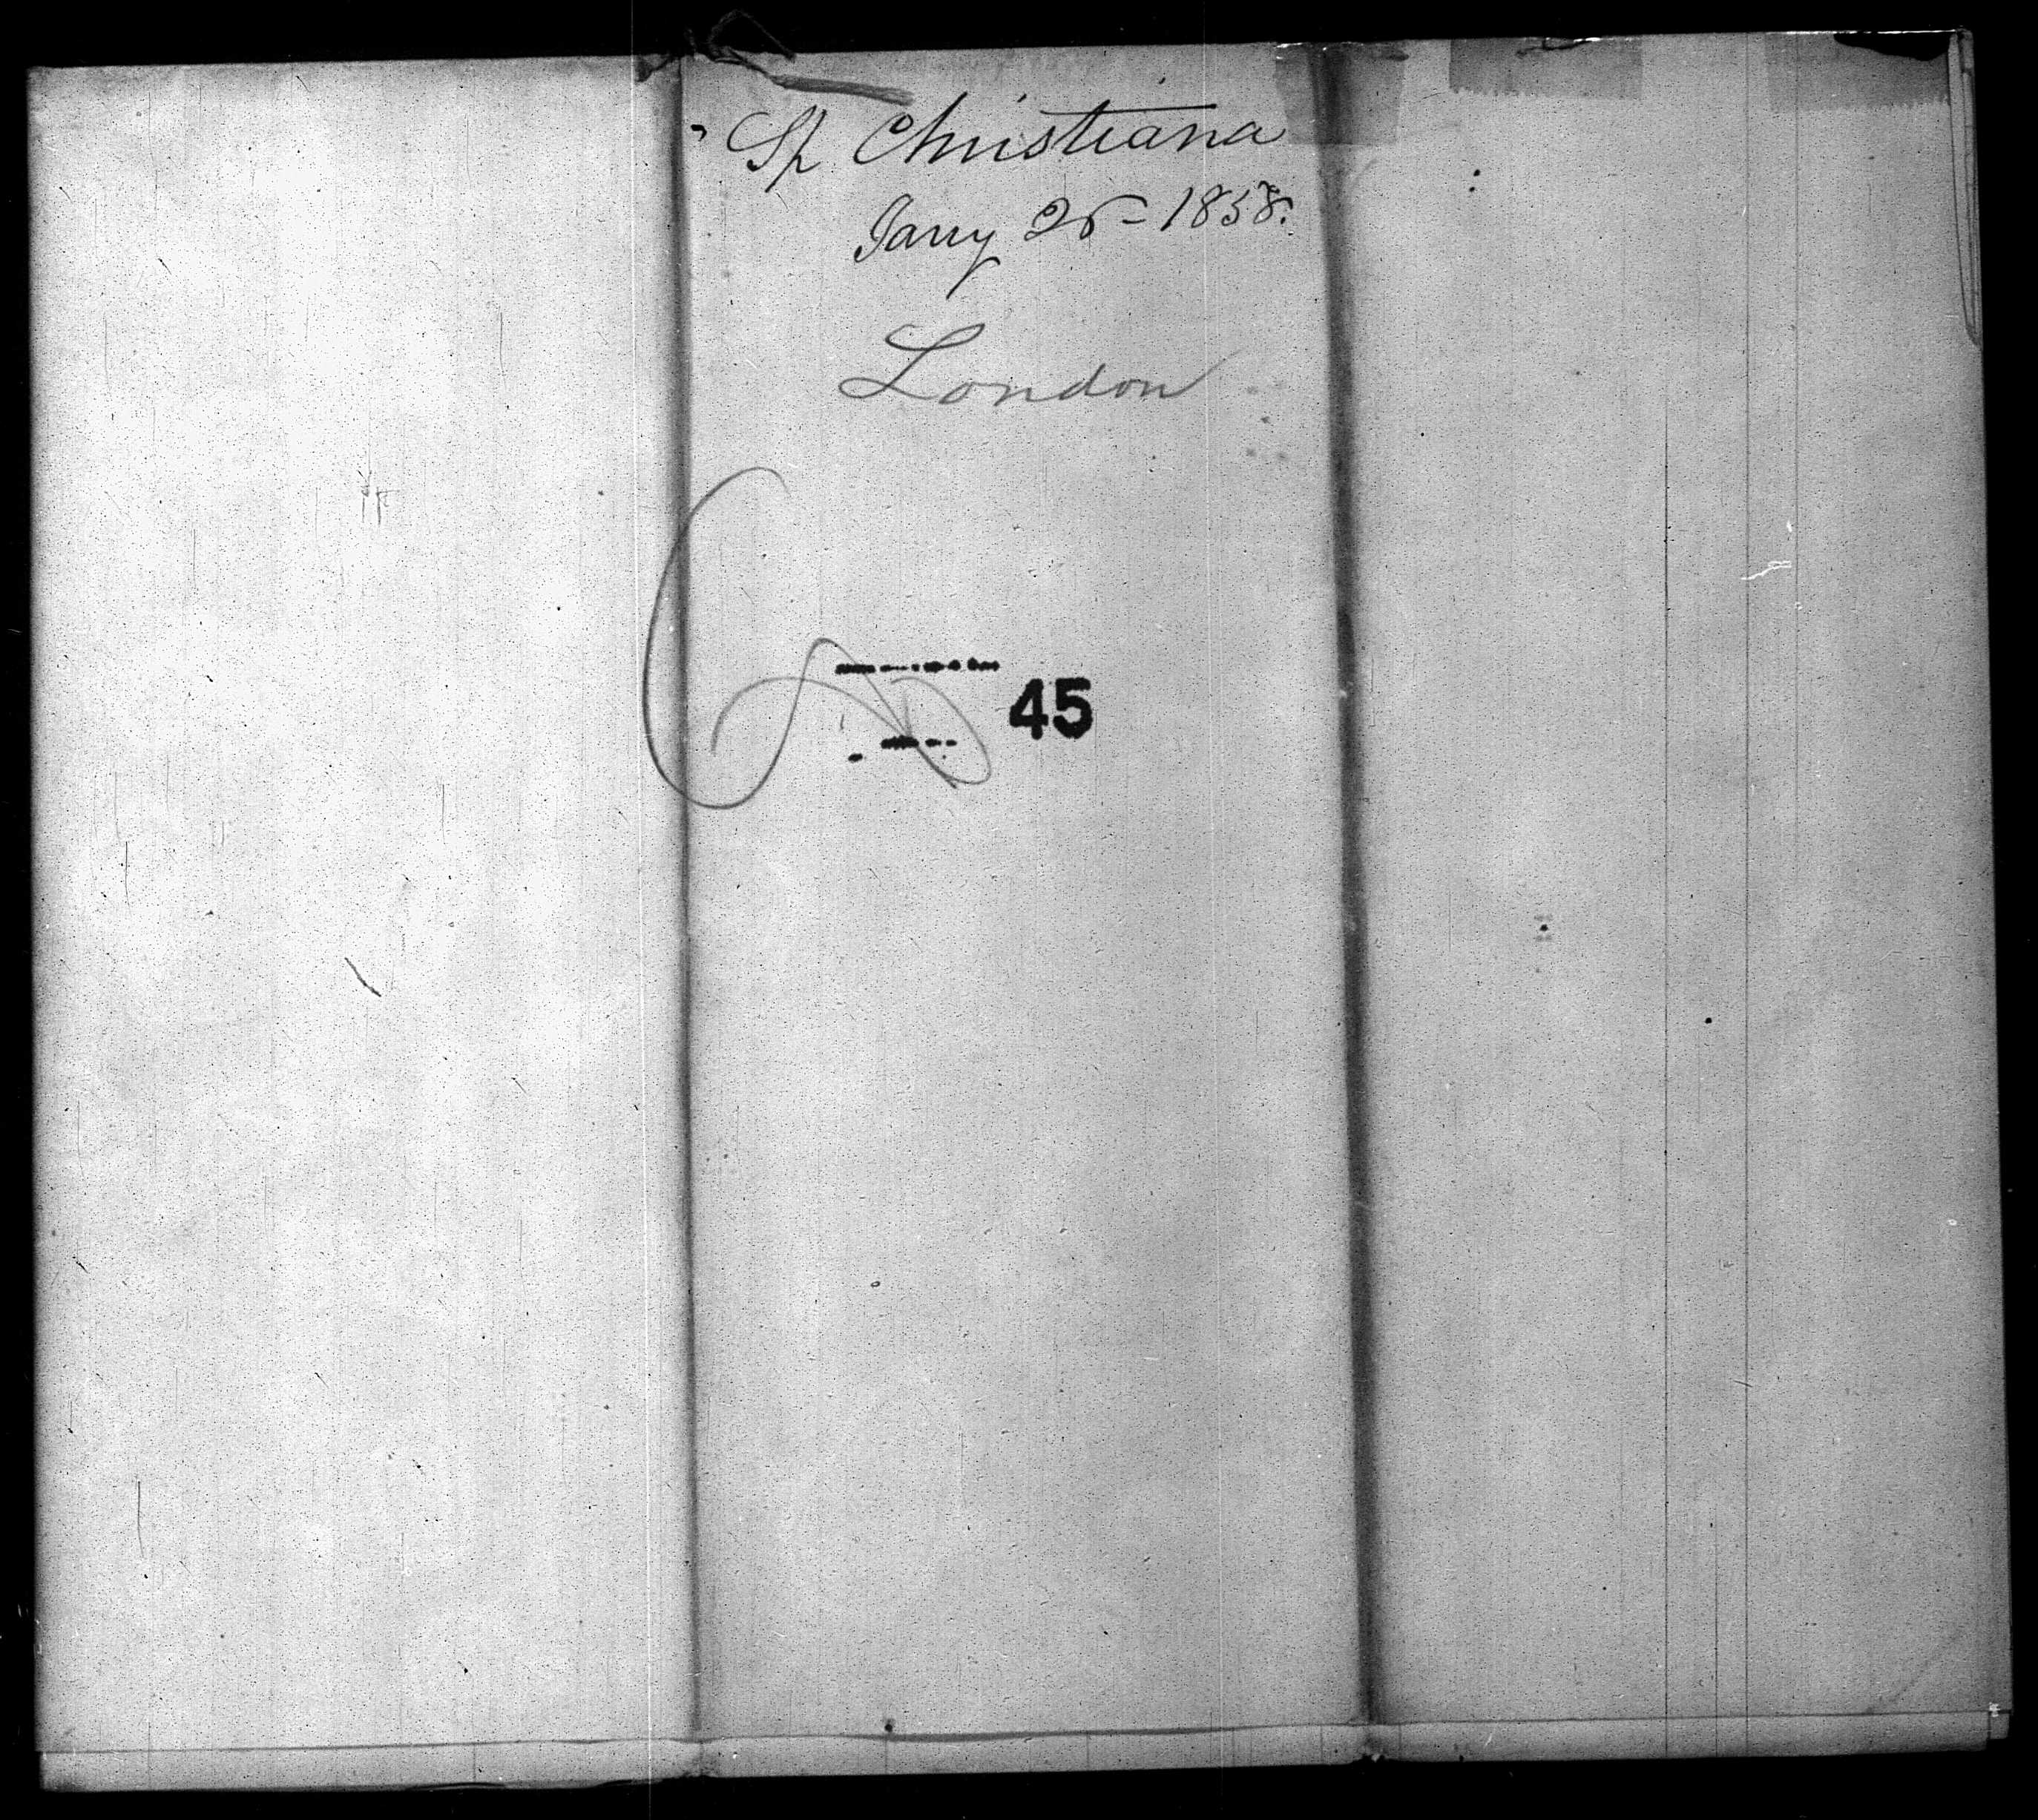 Sp Christiana
Jany 25 - 1858.
London
45